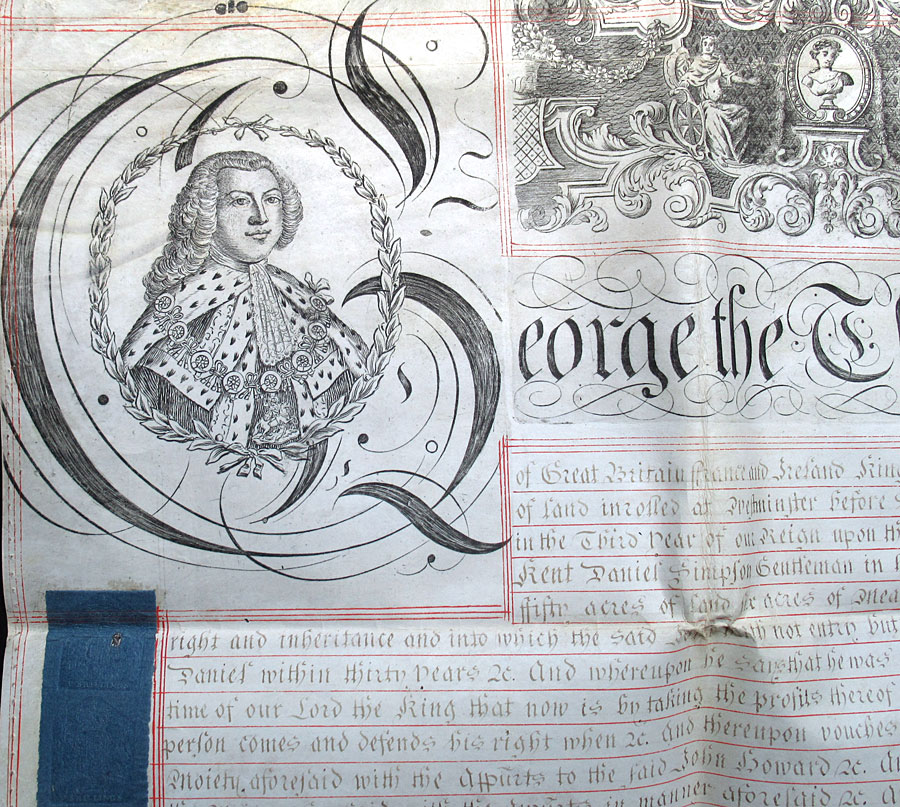 George the T
of Great Britain ffrance and Ireland King
of Land inrolled at Westminster before
in the Third Year of our Reign upon th
Kent Daniel Simpson Gentleman in
ffifty acres of Land acres of Mea
right and inheritance and into which the said not entry but
Daniel within thirty years &c. And whereupon he says that he was
time of our Lord the King that now is by taking the profits thereof
person comes and defends his right when &c. And thereupon vouches
Moiety aforesaid with the Appurts to the said John Howard &c. An
with the in manner aforesaid